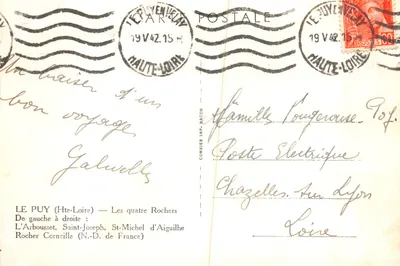 CARTE POSTALE
LE PUY EN VELAY
19 V 42. 15 H
HAUTE-LOIRE
LE PUY EN VELAY
19 V 42. 15 H
HAUTE-LOIRE
Un baiser d'un
bon voyage
Famille
Poste Electrique
Chazelles sur Lyon
Loire
LE PUY (Hte-Loire) — Les quatre Rochers
De gauche à droite :
L'Arbousset, Saint-Joseph, St-Michel d'Aiguilhe
Rocher Corneille (N.-D. de France)